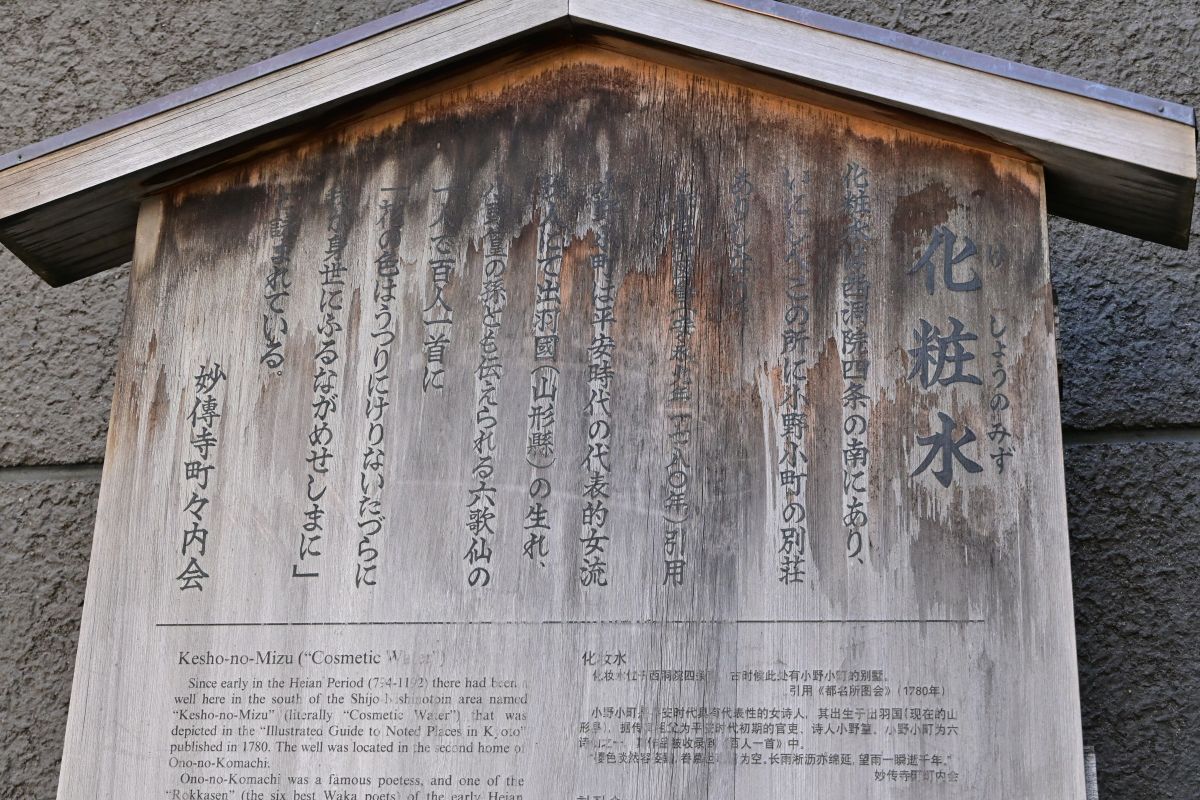 化粧水
け しょうのみず
化粧水は西洞院四条の南にあり、
いにしへこの所に小野小町の別荘
ありしなり
(安永九年一七八〇年)引用
小野小町は平安時代の代表的女流
歌人にて出羽國(山形縣)の生れ、
小野篁の孫とも伝えられる六歌仙の
一人で百人一首に
花の色はうつりにけりないたづらに
我が身世にふるながめせしまに」
と詠まれている。
妙傳寺町々内会
Kesho-no-Mizu (“Cosmetic Water”)
Since early in the Heian Period (794-1192) there had been a
well here in the south of the Shijo-Nishinotoin area named
“Kesho-no-Mizu” (literally “Cosmetic Water”) that was
depicted in the “Illustrated Guide to Noted Places in Kyoto”
published in 1780. The well was located in the second home of
Ono-no-Komachi.
Ono-no-Komachi was a famous poetess, and one of the
“Rokkasen” (the six best Waka poets) of the early Heian
化妆水
化妆水位于西洞院四条 古时候此处有小野小町的别墅。
引用《都名所图会》(1780年)
小野小町是平安时代具有代表性的女诗人，其出生于出羽国(现在的山
形县)，据传其祖父为平安时代初期的官吏、诗人小野篁。小野小町为六
诗仙之一，其作品被收录到《百人一首》中。
樱色淡然容姿 为空。长雨淅沥亦绵延，望雨一瞬逝千年。”
妙传寺町町内会